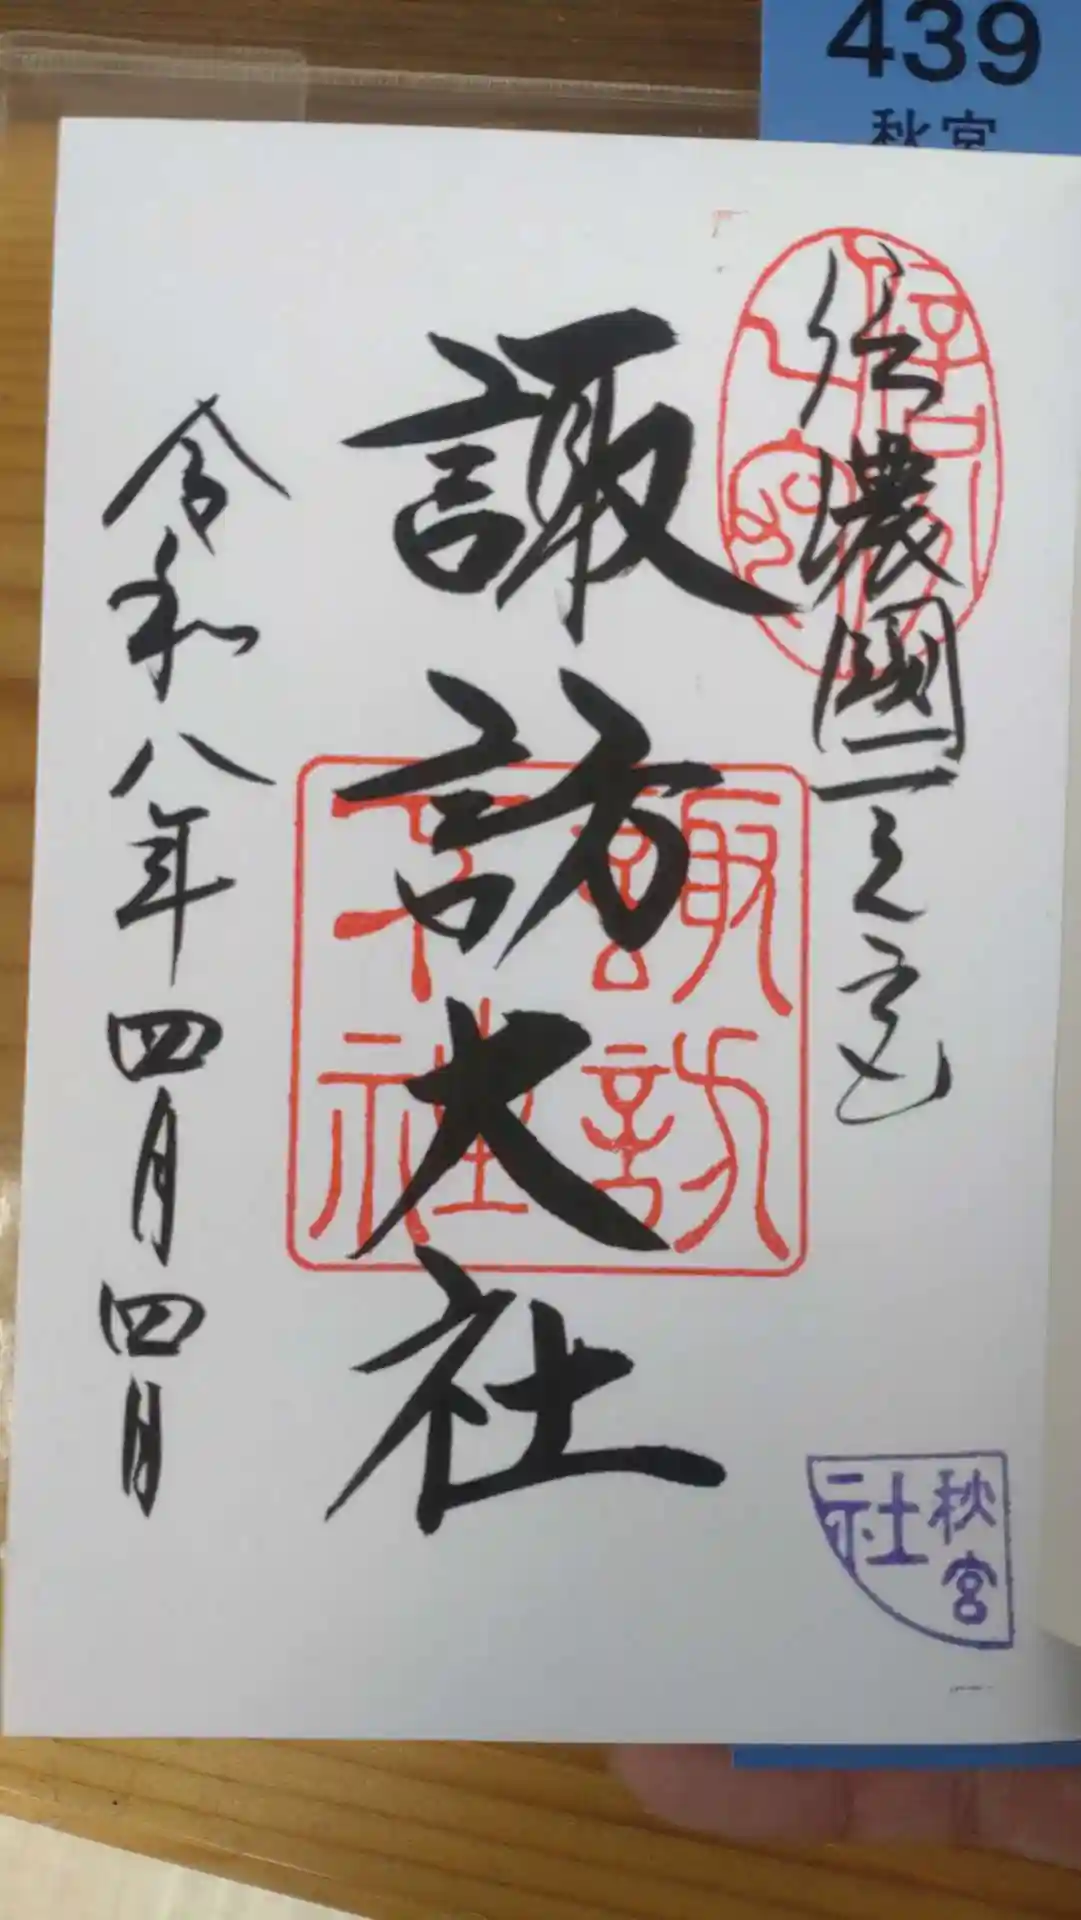 439
秋宮
信濃國一之宮
諏訪大社
令和八年四月四日
諏訪
大社
秋宮
社